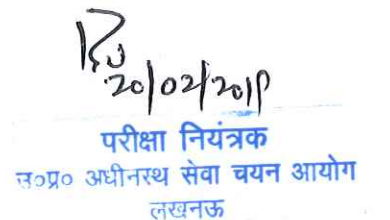 20/02/2019
परीक्षा नियंत्रक
उ०प्र० अधीनस्थ सेवा चयन आयोग
लखनऊ